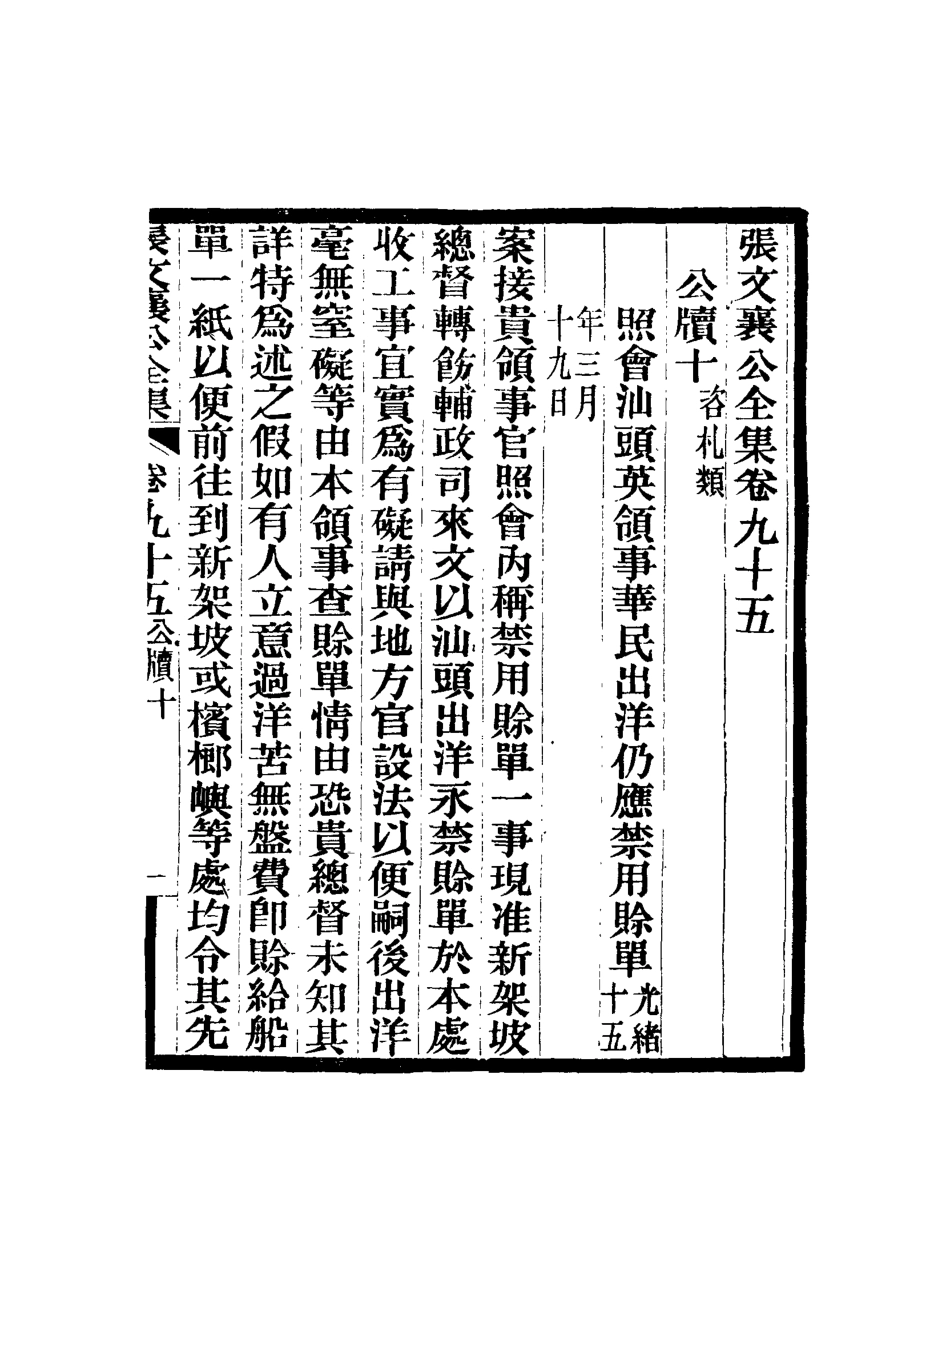 張文襄公全集卷九十五
公牘十 咨札類
照會汕頭英領事華民出洋仍應禁用賒單 光緒十五
年三月十九日
案接貴領事官照會內稱禁用賒單一事現准新架坡
總督轉飭輔政司來文以汕頭出洋永禁賒單於本處
收工事宜實爲有礙請與地方官設法以便嗣後出洋
毫無窒礙等由本領事查賒單情由恐貴總督未知其
詳特爲述之假如有人立意過洋苦無盤費卽賒給船
單一紙以便前往到新架坡或檳榔嶼等處均令其先
張文襄公全集 卷九十五 公牘十 一